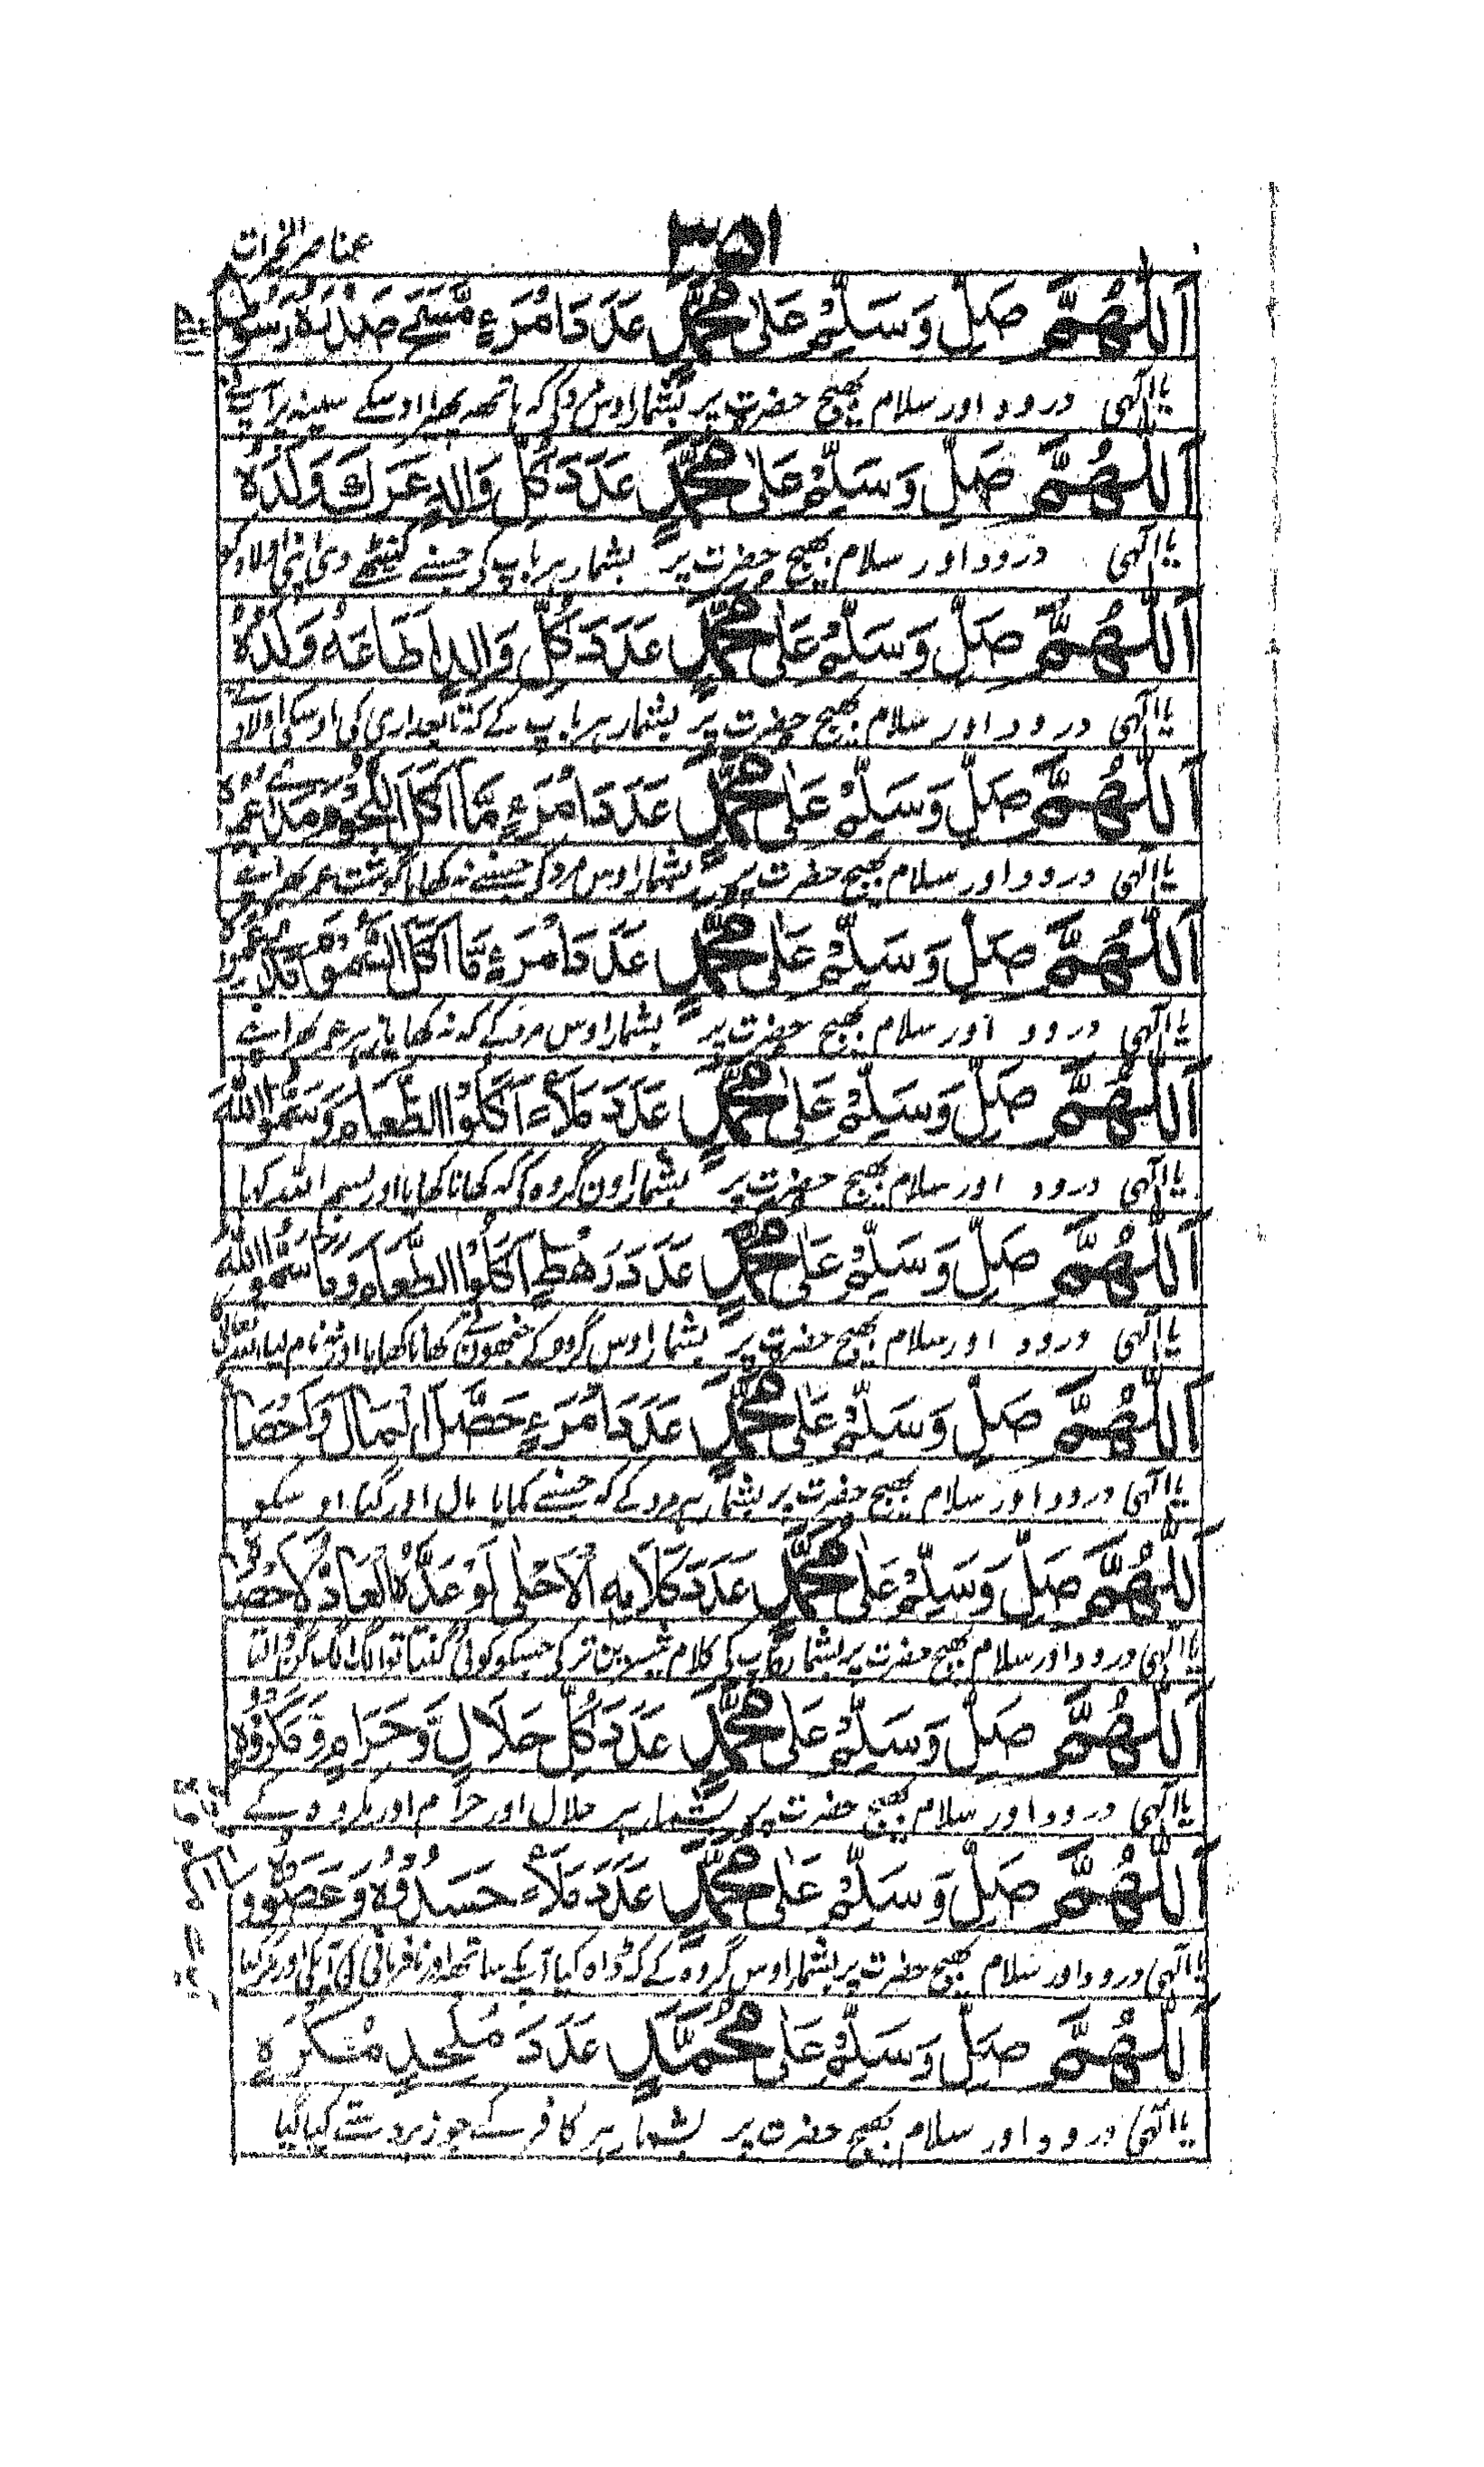 ۳۵۱
عناصر الخيرات
اَللّٰهُمَّ صَلِّ وَسَلِّمْ عَلٰى مُحَمَّدٍ عَدَدَ امْرَءٍ مَّسَحَ صَدْرَهٗ رَسُوْلُ
یا الٰہی درود اور سلام بھیج حضرت پر بشمار اوس مرد کی کہ ہاتھہ پھیرا اوسکے سینہ پر آپنے
اَللّٰهُمَّ صَلِّ وَسَلِّمْ عَلٰى مُحَمَّدٍ عَدَدَ كُلِّ وَالِدٍ عَرَكَ وَلَدَهٗ
یا الٰہی درود اور سلام بھیج حضرت پر بشمار ہر باپ کی جسنے دی اپنی اولاد کو
اَللّٰهُمَّ صَلِّ وَسَلِّمْ عَلٰى مُحَمَّدٍ عَدَدَ كُلِّ وَالِدٍ اَطَاعَهٗ وَلَدُهٗ
یا الٰہی درود اور سلام بھیج حضرت پر بشمار ہر باپ کے کہ تابعداری کی اوسکی اولاد نے
اَللّٰهُمَّ صَلِّ وَسَلِّمْ عَلٰى مُحَمَّدٍ عَدَدَ امْرَءٍ مَّا اَكَلَ اللُّحُوْمَ مُدَّةَ عُمْرِهٖ
یا الٰہی درود اور سلام بھیج حضرت پر بشمار اوس مرد کی جسنے نہ کھایا گوشت عمر بھر اپنے
اَللّٰهُمَّ صَلِّ وَسَلِّمْ عَلٰى مُحَمَّدٍ عَدَدَ امْرَءٍ مَّا اَكَلَ السُّمُوْمَ مُدَّةَ عُمْرِهٖ
یا الٰہی درود اور سلام بھیج حضرت پر بشمار اوس مرد کے کہ نہ کھایا زہر عمر بھر اپنے
اَللّٰهُمَّ صَلِّ وَسَلِّمْ عَلٰى مُحَمَّدٍ عَدَدَ مَلَاءٍ اَكَلُوْا الطَّعَامَ وَسَمُّوْا اللّٰهَ
یا الٰہی درود اور سلام بھیج حضرت پر بشمار اون گروہ کی کہ کھانا کھایا اور بسم اللہ کہا
اَللّٰهُمَّ صَلِّ وَسَلِّمْ عَلٰى مُحَمَّدٍ عَدَدَ رَهْطٍ اَكَلُوْا الطَّعَامَ وَمَا سَمُّوْا اللّٰهَ
یا الٰہی درود اور سلام بھیج حضرت پر بشمار اوس گروہ کی جنھوں نے کھانا کھایا اور نہ نام لیا اللہ تعالی کا
اَللّٰهُمَّ صَلِّ وَسَلِّمْ عَلٰى مُحَمَّدٍ عَدَدَ امْرَءٍ حَصَّلَ الْمَالَ وَاَحْصَاهُ
یا الٰہی درود اور سلام بھیج حضرت پر بشمار ہر مرد کے کہ جسنے کمایا مال اور گنا اوسکو
اَللّٰهُمَّ صَلِّ وَسَلِّمْ عَلٰى مُحَمَّدٍ عَدَدَ كَلَامِهِ الْاَحْلٰى لَوْ عَدَّهُ الْعَادُّ لَاَحْصَاهُ
یا الٰہی درود اور سلام بھیج حضرت پر بشمار آپ کی کلام شیرین تر کی جسکو کوئی گنتا تو
اَللّٰهُمَّ صَلِّ وَسَلِّمْ عَلٰى مُحَمَّدٍ عَدَدَ كُلِّ حَلَالٍ وَّحَرَامٍ وَّمَكْرُوْهٍ
یا الٰہی درود اور سلام بھیج حضرت پر بشمار ہر حلال اور حرام اور مکروہ کے
اَللّٰهُمَّ صَلِّ وَسَلِّمْ عَلٰى مُحَمَّدٍ عَدَدَ مَلَاءٍ حَسَدُوْهُ وَعَصَوْهُ وَ
یا الٰہی درود اور سلام بھیج حضرت پر بشمار اوس گروہ کے کہ ڈاہ کیا آپکے ساتھ اور نافرمانی کی آپکی اور
اَللّٰهُمَّ صَلِّ وَسَلِّمْ عَلٰى مُحَمَّدٍ عَدَدَ مُلْحِدٍ مُّكْرَهٍ
یا الٰہی درود اور سلام بھیج حضرت پر بشمار ہر کافر کے جو زبردست کیا گیا